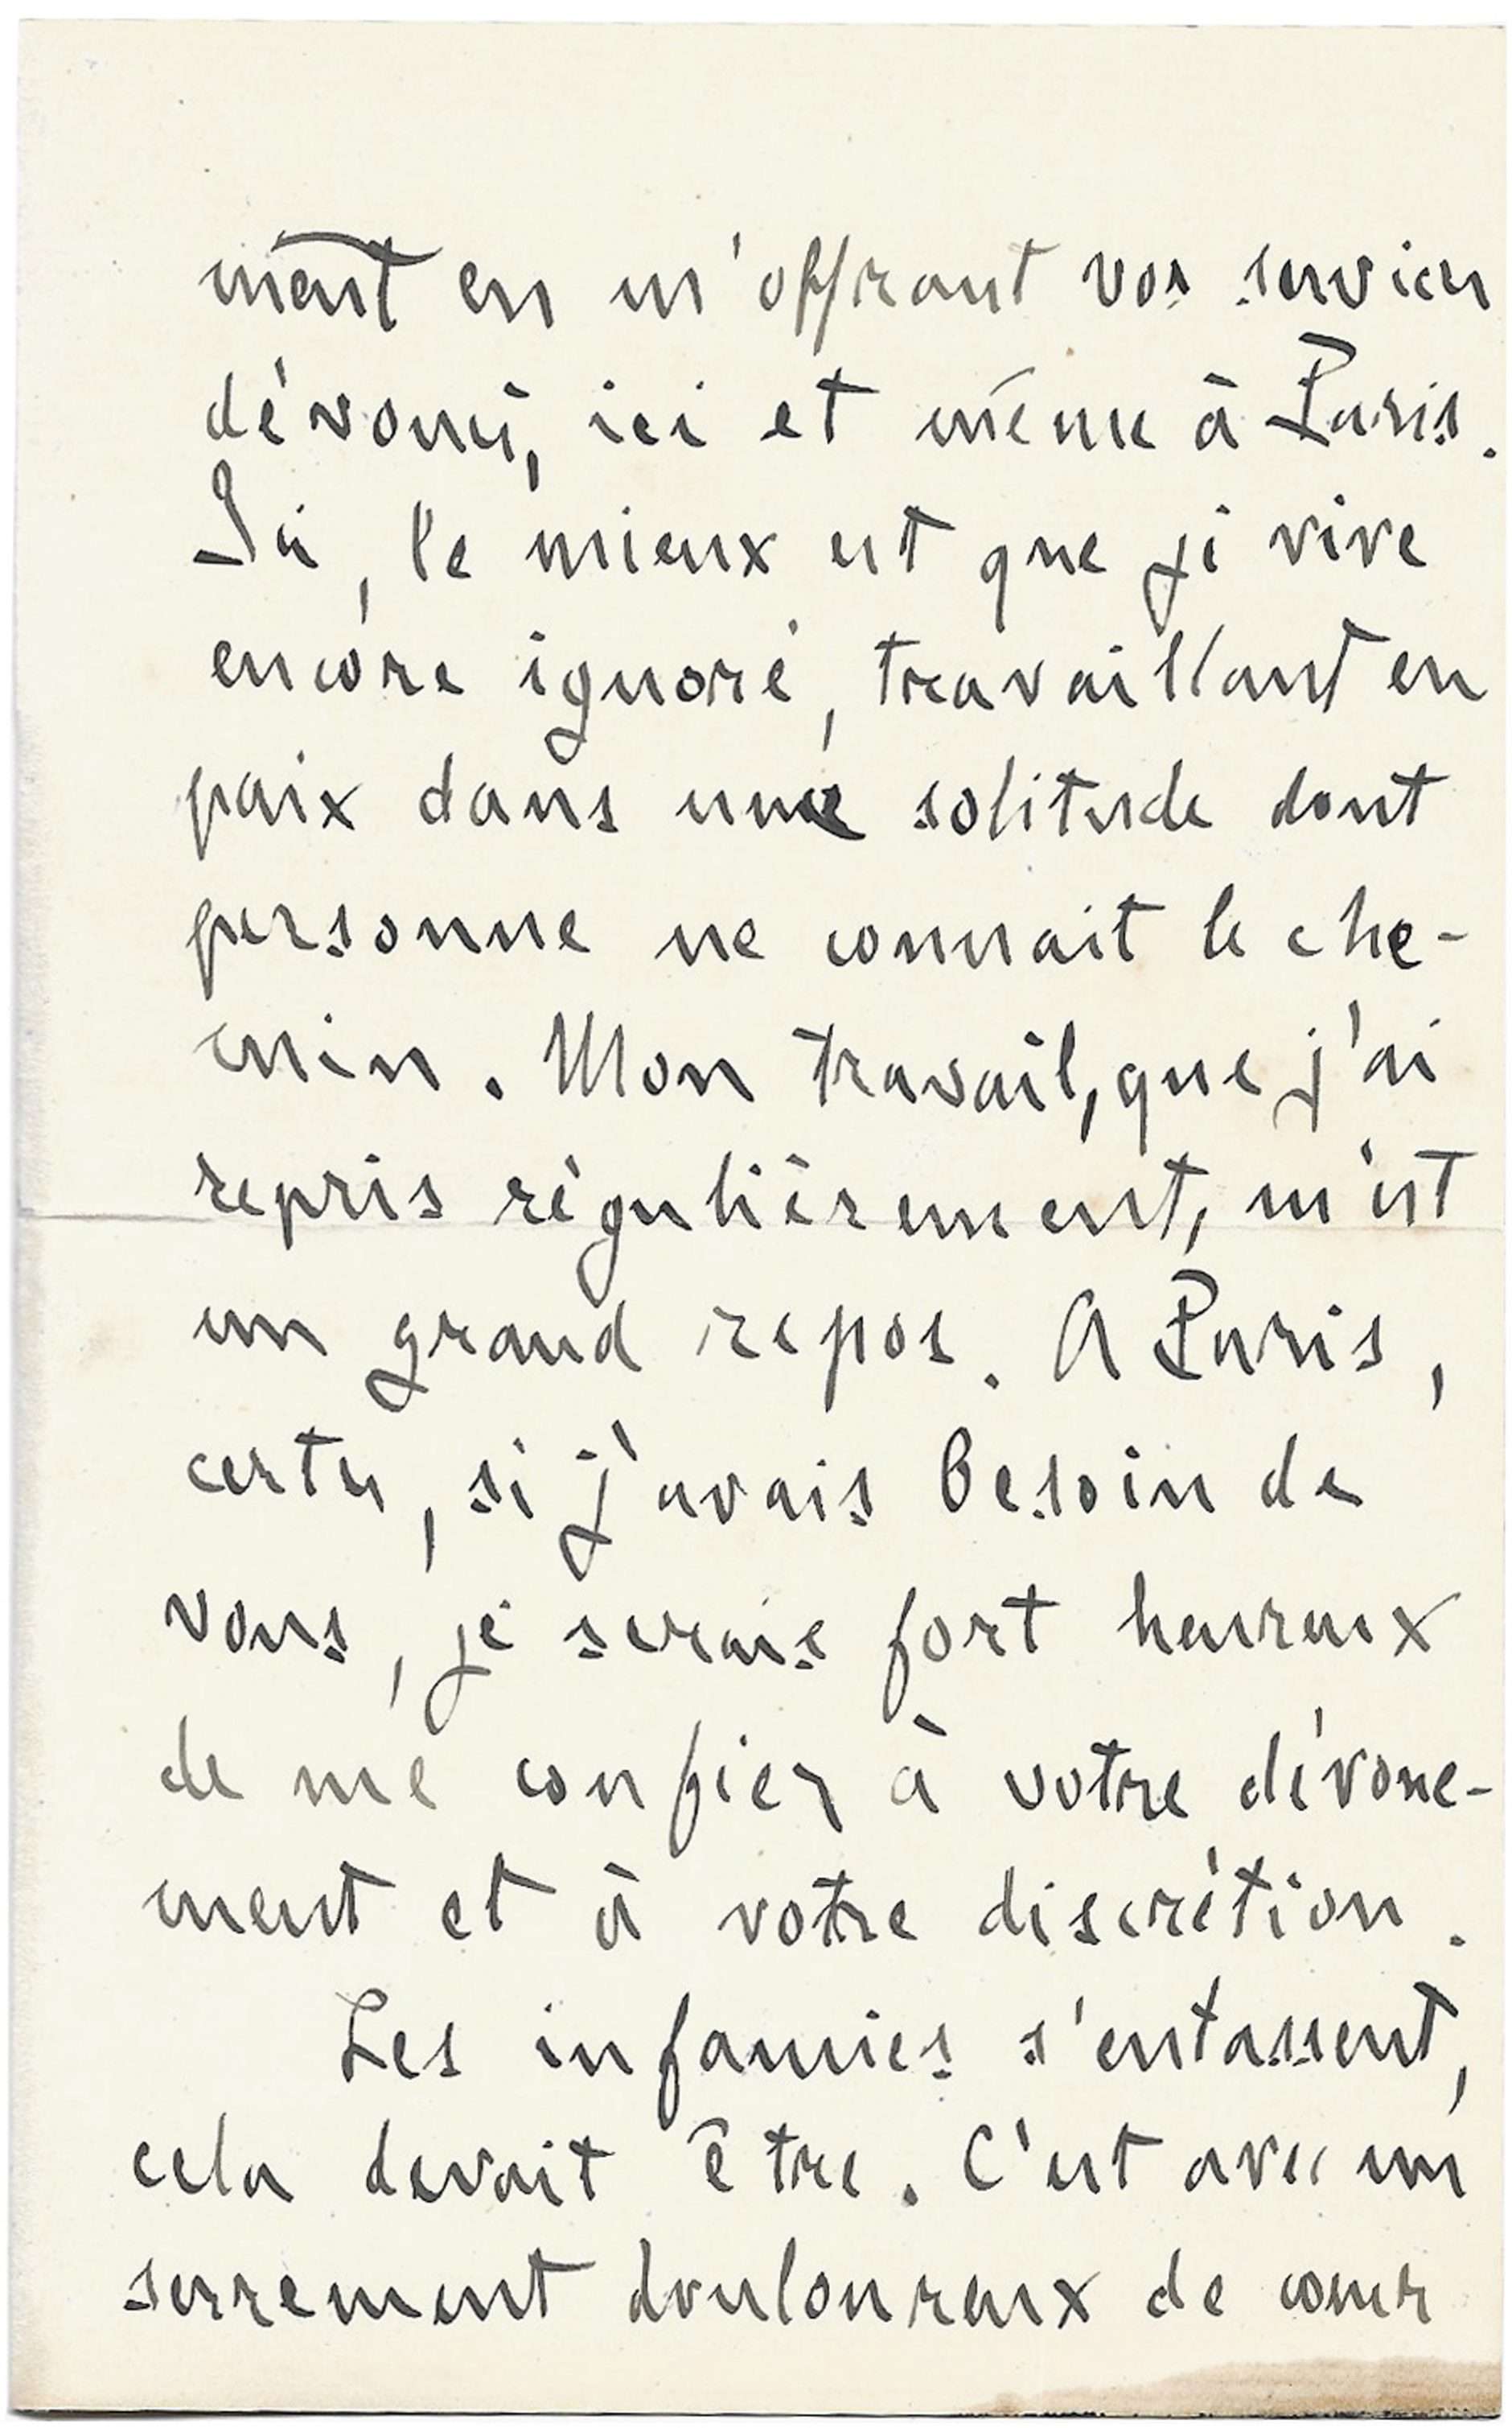 ment en m'offrant vos services
dévoués, ici et même à Paris.
Ici, le mieux est que je vive
encore ignoré, travaillant en
paix dans une solitude dont
personne ne connait le che-
min. Mon travail, que j'ai
repris régulièrement, m'est
un grand repos. A Paris,
certes, si j'avais besoin de
vous, je serais fort heureux
de me confier à votre dévoue-
ment et à votre discrétion.
Les infamies s'entassent,
cela devait être. C'est avec un
serrement douloureux de coeur